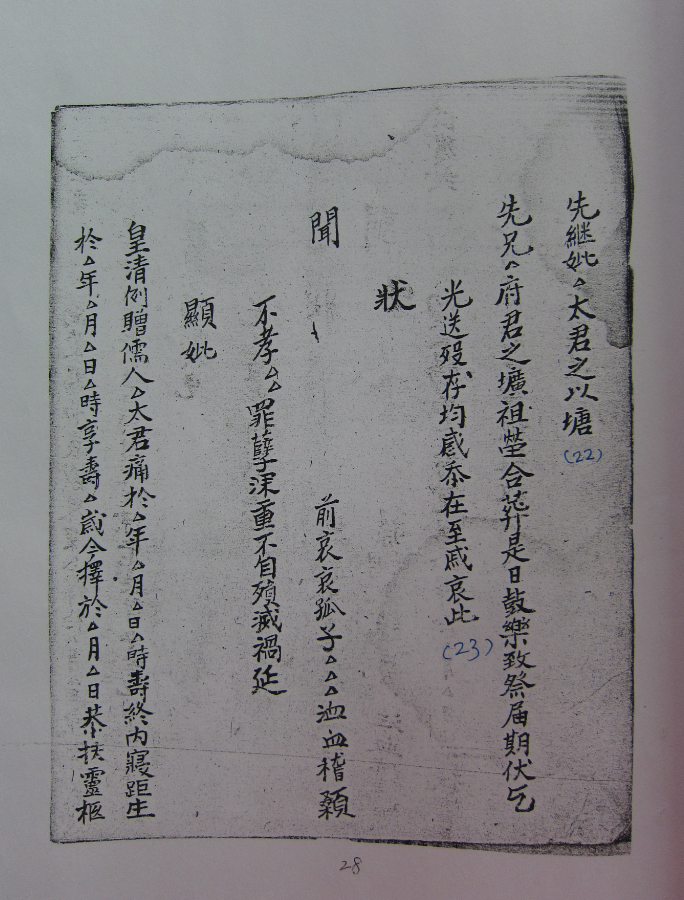 先継妣△太君之以塘
(22)
先兄△府君之壙祖塋合葬是日鼓樂致祭届期伏乞
光送殁存均感忝在至戚哀此
(23)
狀
聞
前哀哀孤子△△△泣血稽顙
不孝△△罪孽深重不自殞滅禍延
顯妣
皇清例贈儒人△太君痛於△年△月△日△時壽終内寢距生
於△年△月△日△時享壽△歲今擇於△月△日恭扶靈柩
28